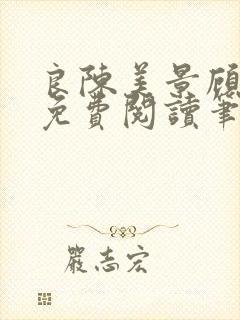 良陳美景顧
免費閱讀筆
嚴志宏